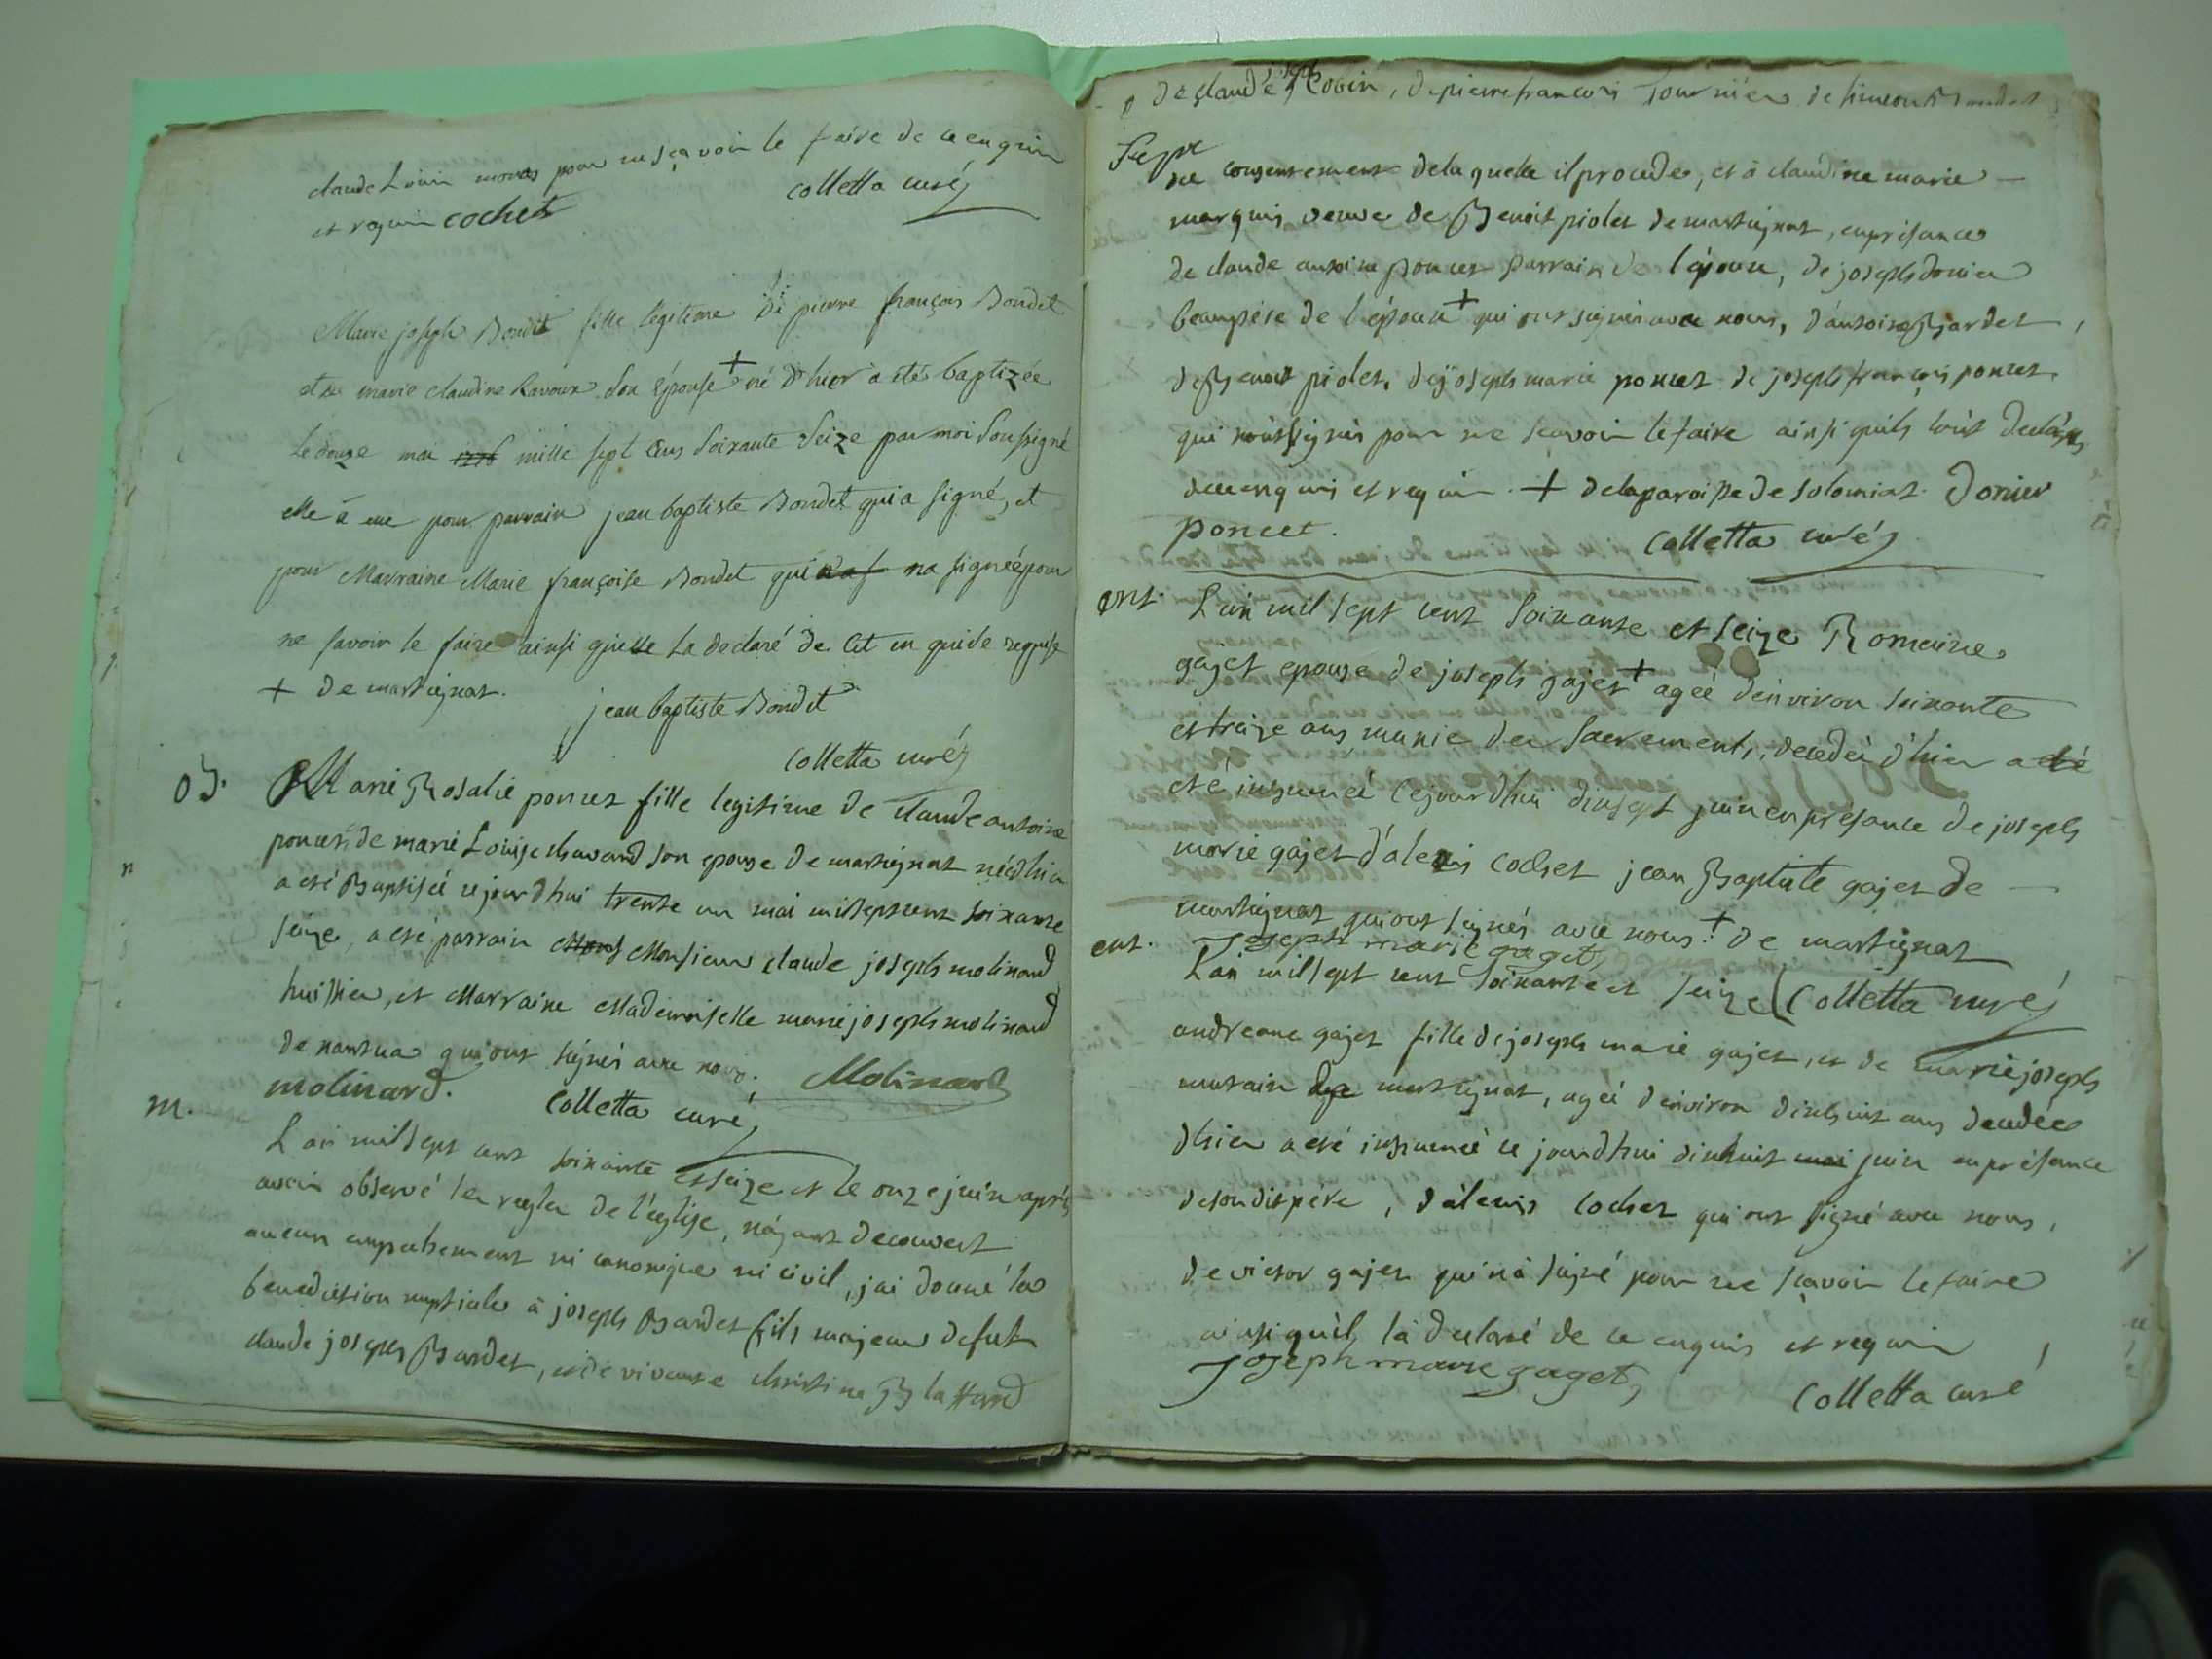 claude Louis pour ne sçavoir le faire de ce enquis
et requis cochet colletta curé
Marie joseph Bondet fille legitime De pierre françois Bondet
et de marie claudine Ravoux son Epouse + né d'hier a été baptizée
Le douze mai 1776 mille sept cens soixante Seize par moi soussigné
elle a eue pour parrain jean baptiste Bondet qui a signé, et
pour Marraine Marie françoise Bondet qui na signée pour
ne savoir le faire ainsi quelle La declaré de Cet en quise requise
+ de martignat.
jean baptiste Bondet
colletta curé
B. Marie Rosalie poncet fille legitime de claude antoine
poncet, et de marie Louise chavand son epouse de martignat née d'hier
a eté Baptisée ce jourd'hui trente un mai mil sept cent soixante
seize, a eté parrain Mons Monsieur claude joseph molinard
huissier, et Marraine Mademoiselle marie joseph molinard
de nantua qui ont signés avec nous. Molinard
molinard. Colletta curé
m. L'an mil sept cent soixante et seize et le onze juin après
avoir observé les regles de l'église, n'ayant decouvert
aucun empechement ni canonique ni civil, j'ai donné la
benediction nuptiale à joseph Bardet fils majeur de fut
claude joseph Bardet, et de vivante christine Blattard
de claude joseph Cobin, de pierre francois Tournier de simeon Bondet
du consentement de laquelle il procede, et à claudine marie
marquis veuve de Benoit piolet de martignat, en présance
de claude antoine poncet parrain de l'époux, de joseph donier
beaupère de l'épouse + qui ont signés avec nous, d'antoine Bardet,
de Benoit piolet, de joseph marie poncet de joseph françois poncet,
qui n'ont signés pour ne sçavoir le faire ainsi quils l'ont declarés
de ce enquis et requis. + de la paroisse de solomiat. Donier
poncet. Colletta curé
ent. L'an mil sept cent soixante et seize Romaine
gajet epouse de joseph gajet + agée d'environ soixante
et treize ans munie des sacrements, decedée d'hier a été
eté inhumée cejourdhui dixsept juin en présance de joseph
marie gajet d'alexis cochet jean Baptiste gajet de
martignat qui ont signés avec nous. + de martignat
Joseph marie gaget
ent. L'an mil sept cent soixante et seize Colletta curé
andreane gajet fille de joseph marie gajet, et de marie joseph
de martignat, agée d'environ dixhuit ans decedée
d'hier a eté inhumée ce jourd'hui dixhuit mai juin en présance
de son dit père, d'alexis cochet qui ont signé avec nous,
de victor gajet qui n'a signé pour ne sçavoir le faire
ainsi qu'il l'a declaré de ce enquis et requis
Joseph marie gaget
Colletta curé